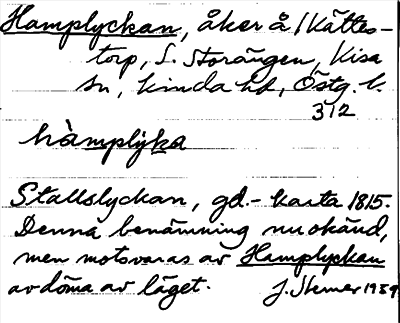 Hamplyckan, åker å 1 Kättes-
torp, S. Storängen, Kisa
sn, Kinda hd, Östg. l.
312
hàmplỳka
Stallslyckan, gd.- karta 1815.
Denna benämning nu okänd,
men motsvaras av Hamplyckan
av döma av läget. J. Stemer 1939